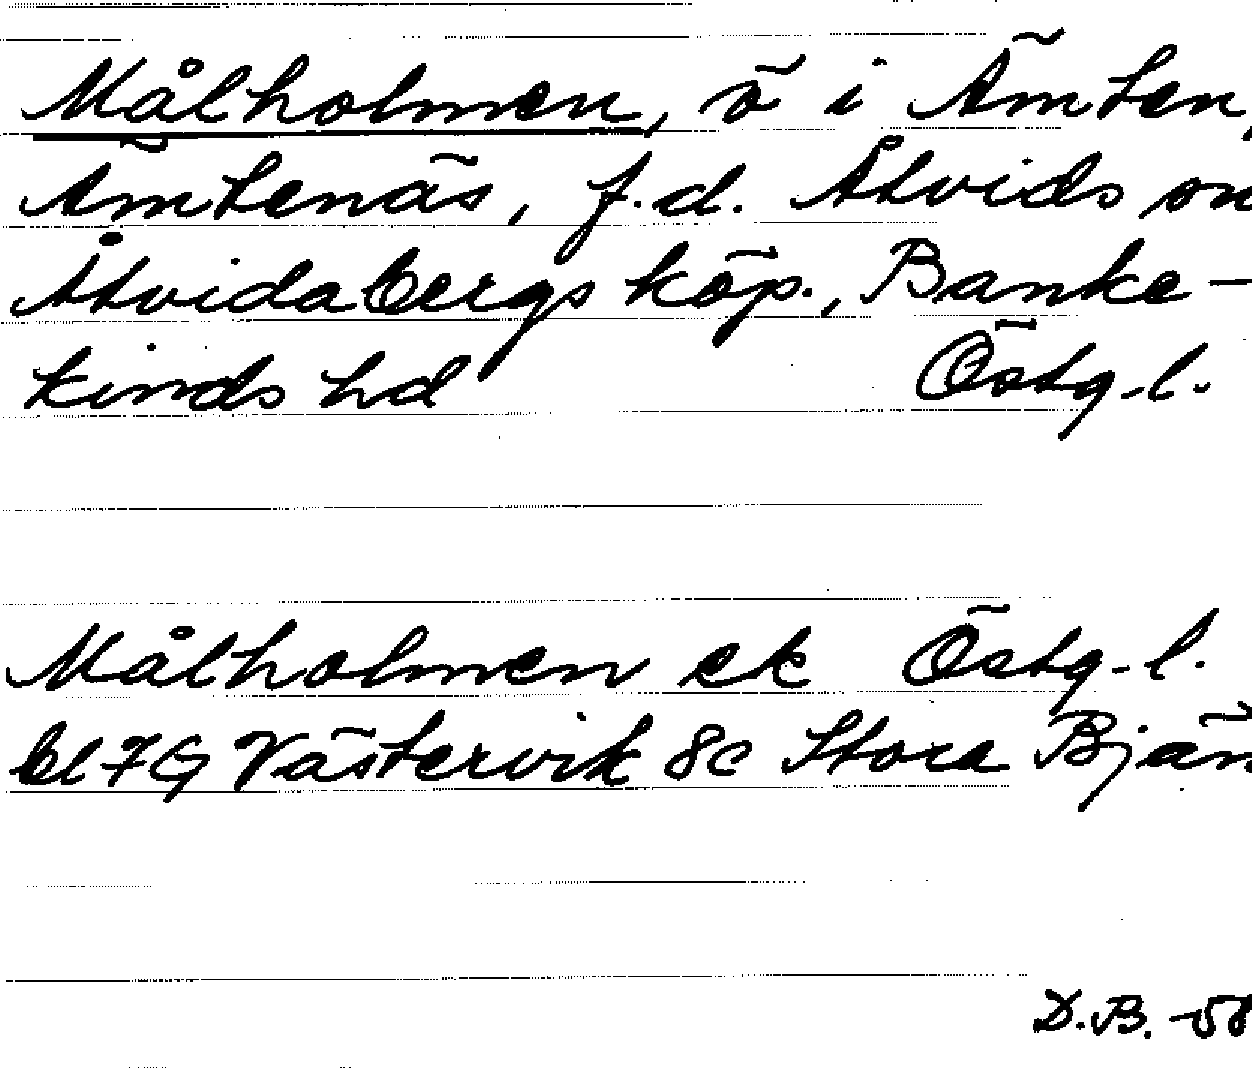 Målholmen, ö i Ämten,
Ämtenäs, f.d. Åtvids sn
Åtvidabergs köp., Banke-
kinds hd Östg.l.
Målholmen ek Östg.l.
bl 7G Västervik 8c Stora Bjän
D.B. -58